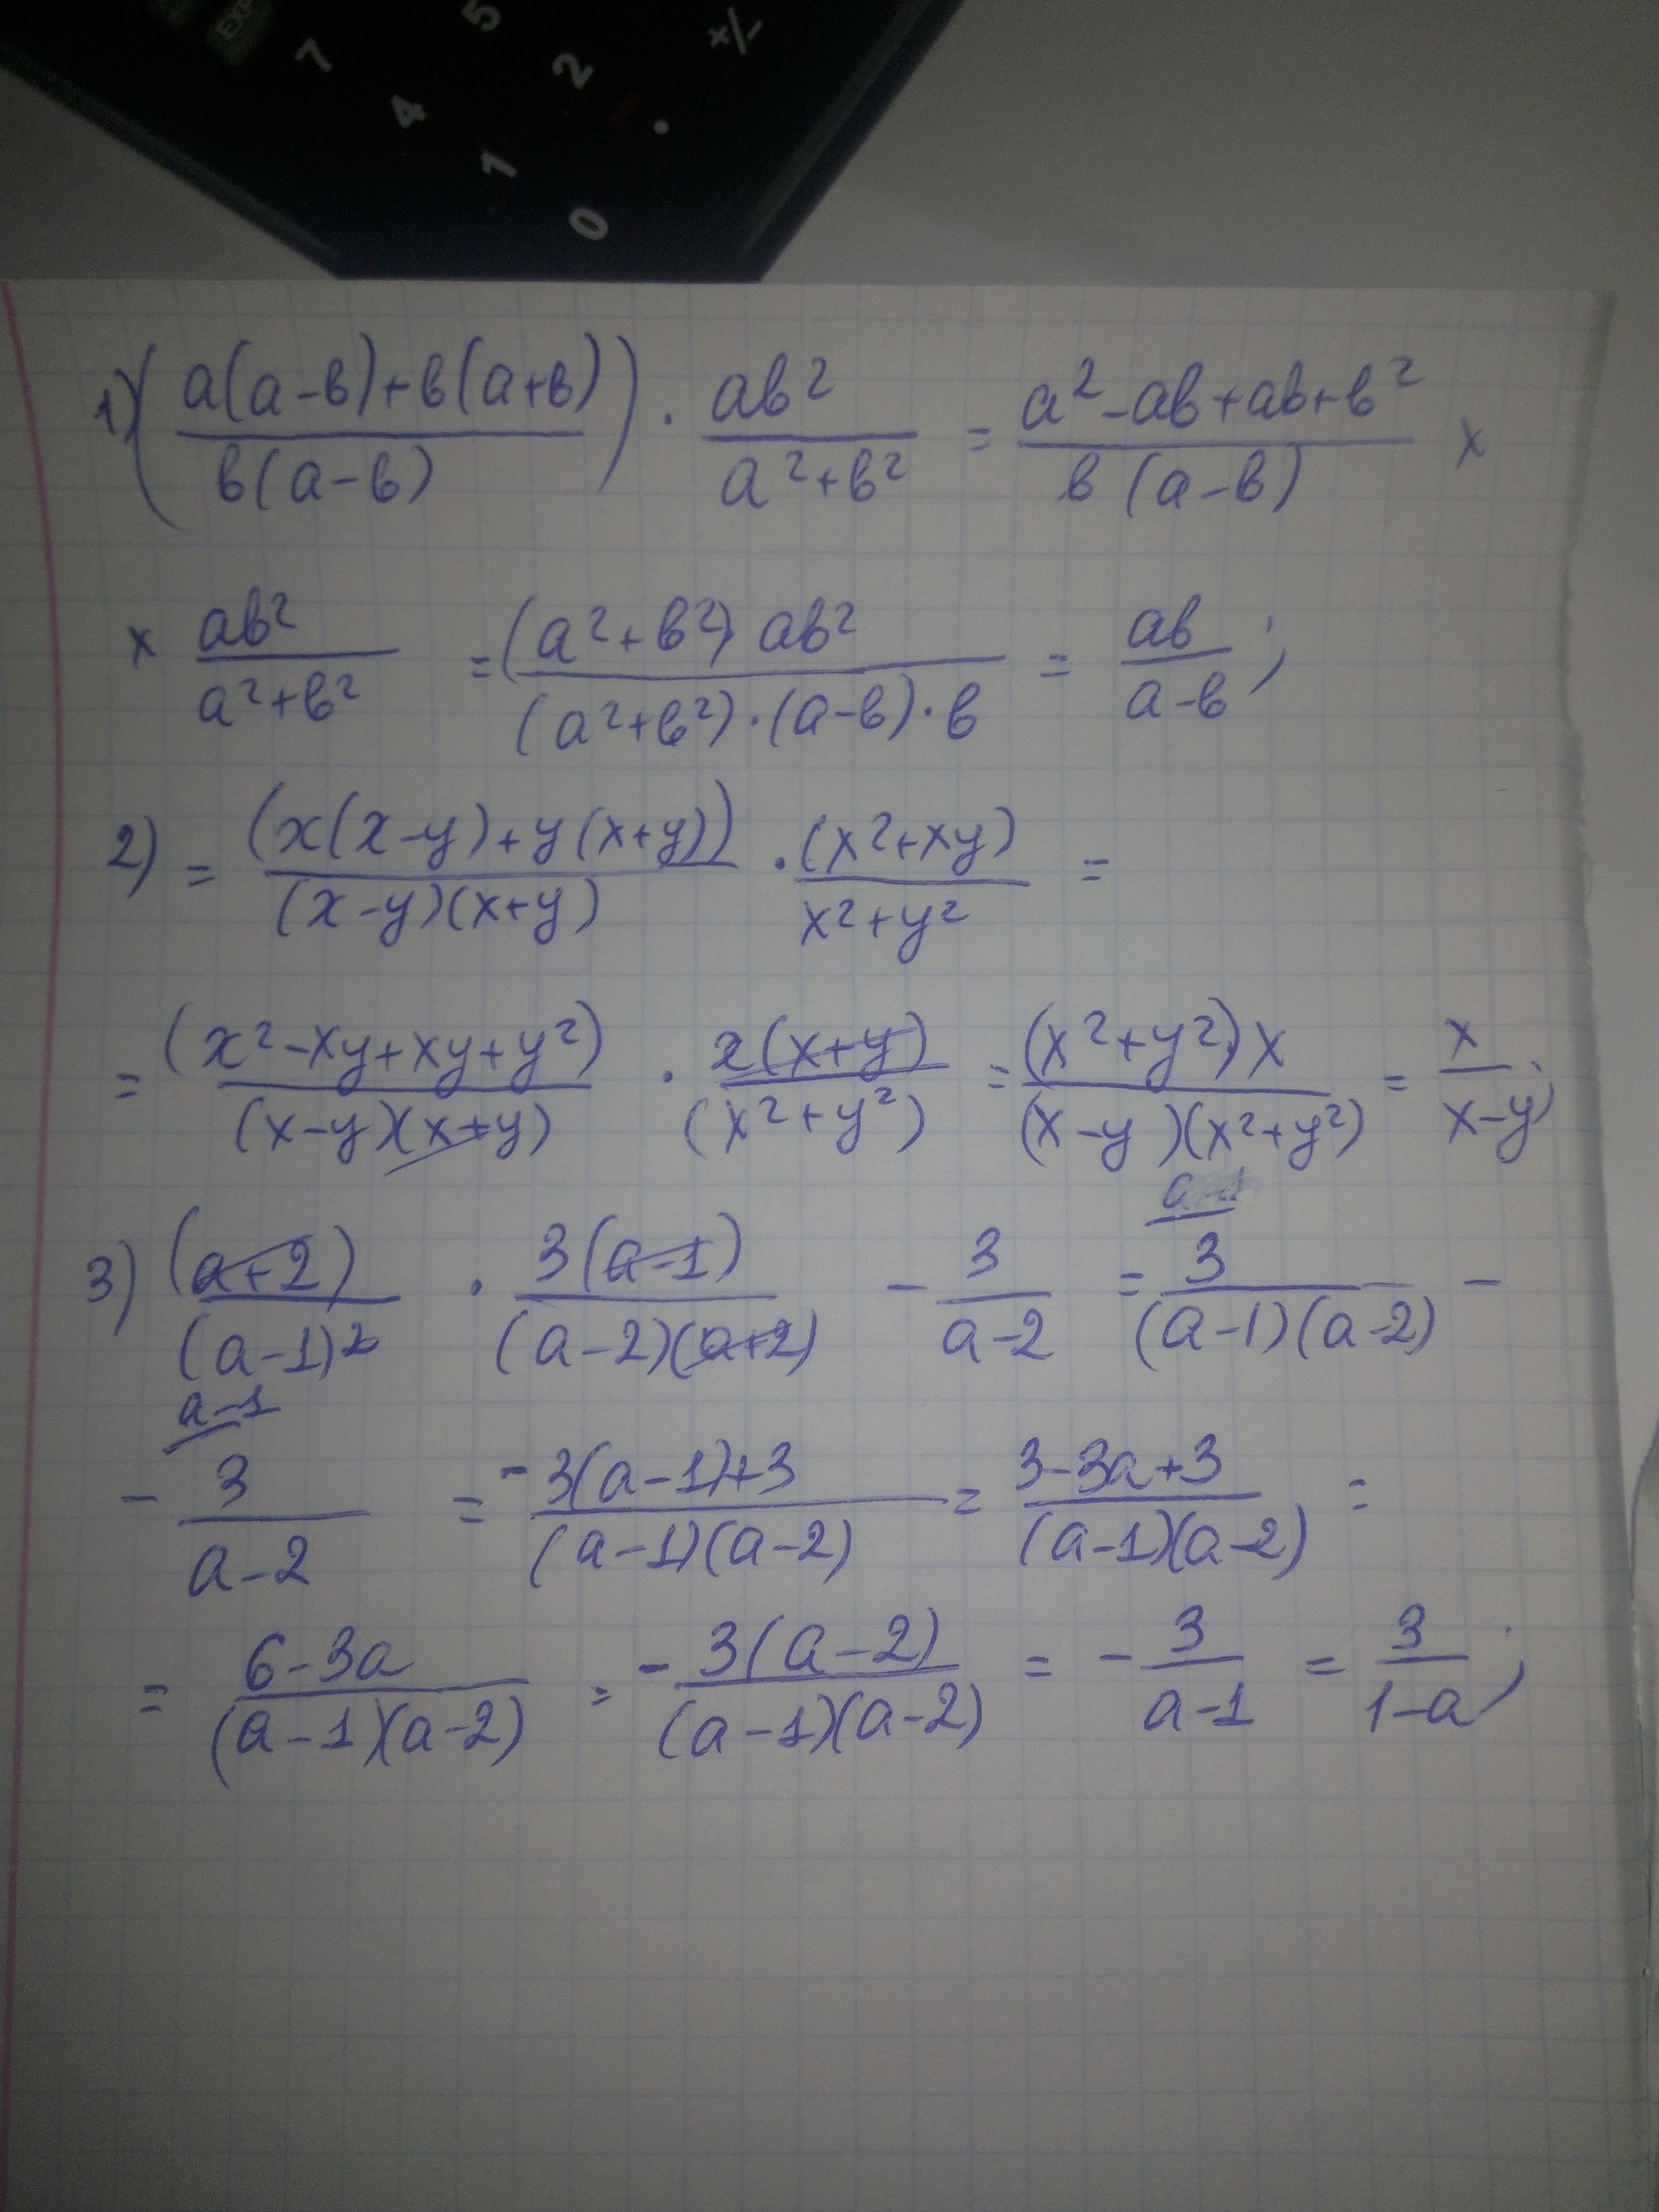 EXP 7 5
4 2 +/-
1 .
0
1) ( (a(a-в)+в(a+в))/(в(a-в)) ) · aв²/(a²+в²) = (a²-aв+aв+в²)/(в(a-в)) ×
× aв²/(a²+в²) = ((a²+в²)·aв²)/((a²+в²)·(a-в)·в) = aв/(a-в);
2) = (x(x-y)+y(x+y))/((x-y)(x+y)) · (x²+xy)/(x²+y²) =
= (x²-xy+xy+y²)/((x-y)(x+y)) · x(x+y)/(x²+y²) = ((x²+y²)·x)/((x-y)(x²+y²)) = x/(x-y);
3) (a+2)/(a-1)² · 3(a-1)/((a-2)(a+2)) - 3/(a-2) = 3/((a-1)(a-2)) -
a-1
- 3/(a-2) = (-3(a-1)+3)/((a-1)(a-2)) = (3-3a+3)/((a-1)(a-2)) =
= (6-3a)/((a-1)(a-2)) = - 3(a-2)/((a-1)(a-2)) = - 3/(a-1) = 3/(1-a);